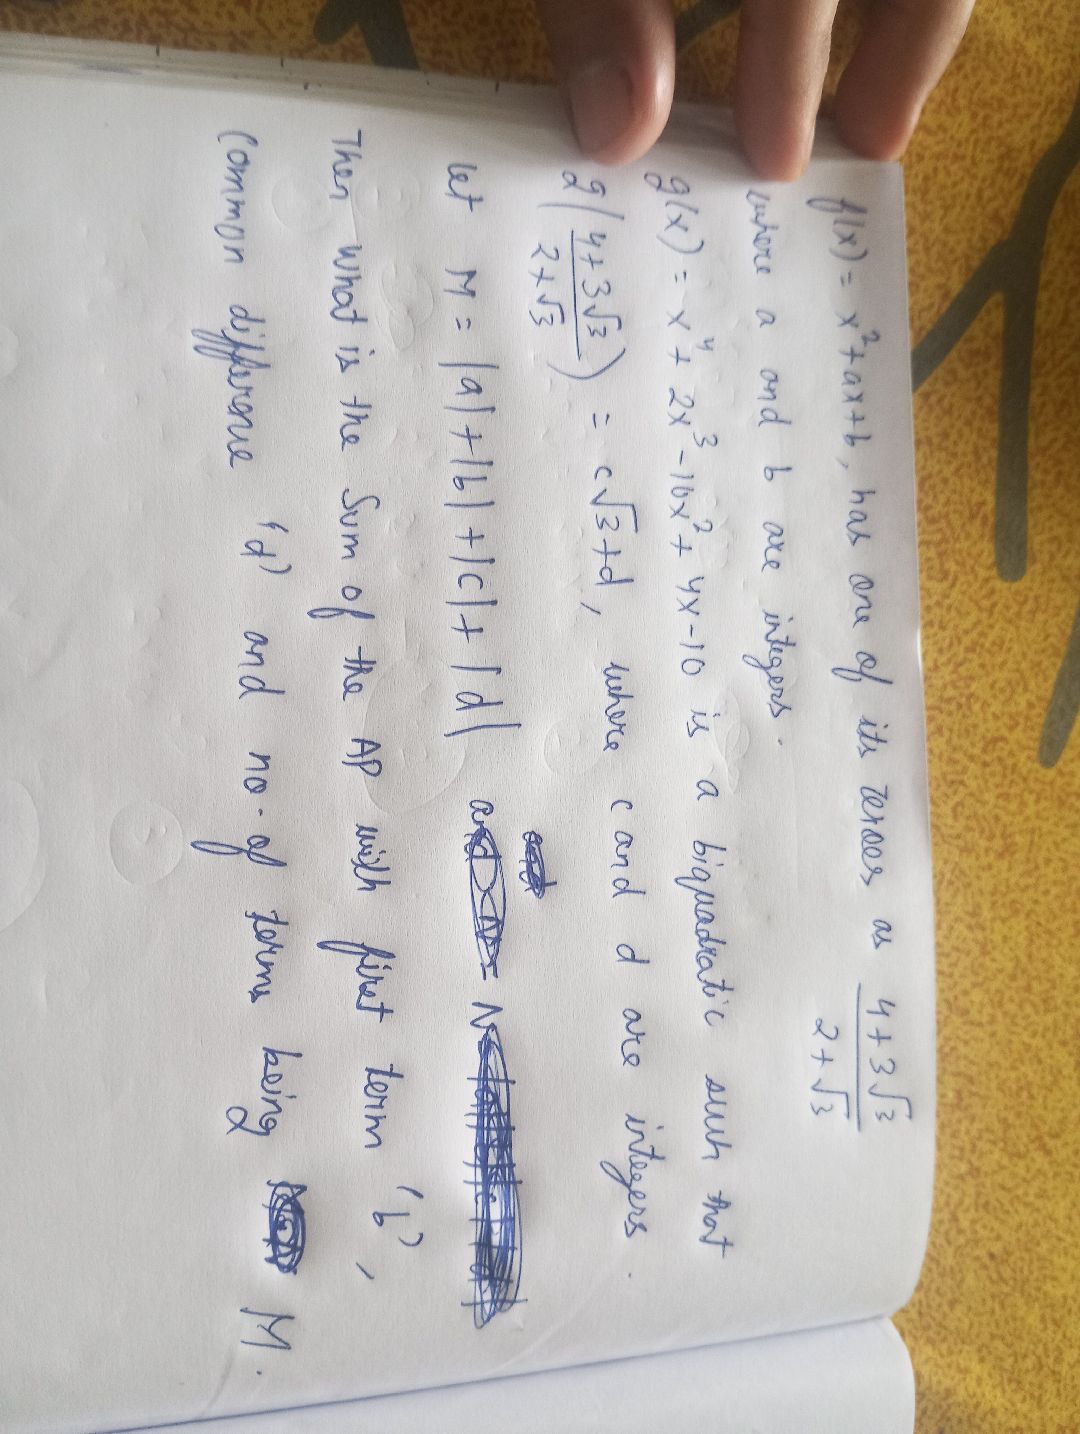 f(x) = x² + ax + b, has one of its zeroes as (4+3√3)/(2+√3)
where a and b are integers.
g(x) = x⁴ + 2x³ - 16x² + 4x - 10 is a biquadratic such that
g((4+3√3)/(2+√3)) = c√3 + d, where c and d are integers.
let M = |a| + |b| + |c| + |d|
Then what is the Sum of the AP with first term 'b',
Common difference 'd' and no. of terms being M.